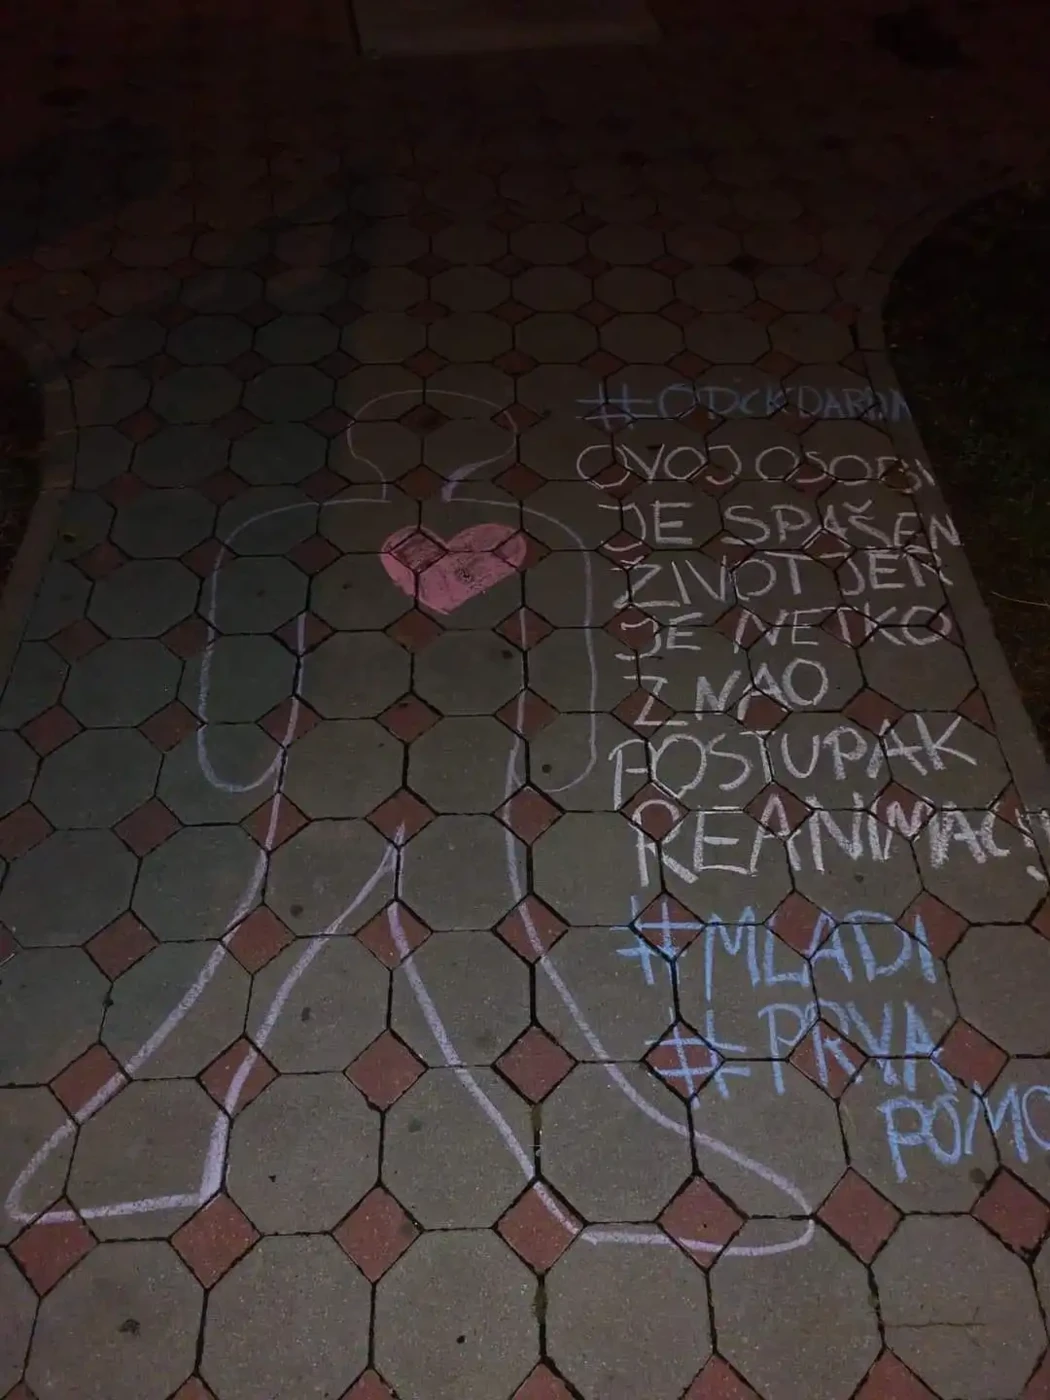 OVOJ OSOBI
JE SPAŠEN
ŽIVOT JER
JE NETKO
ZNAO
POSTUPAK
REANIMACIJ
#MLADI
#PRVA
POMO